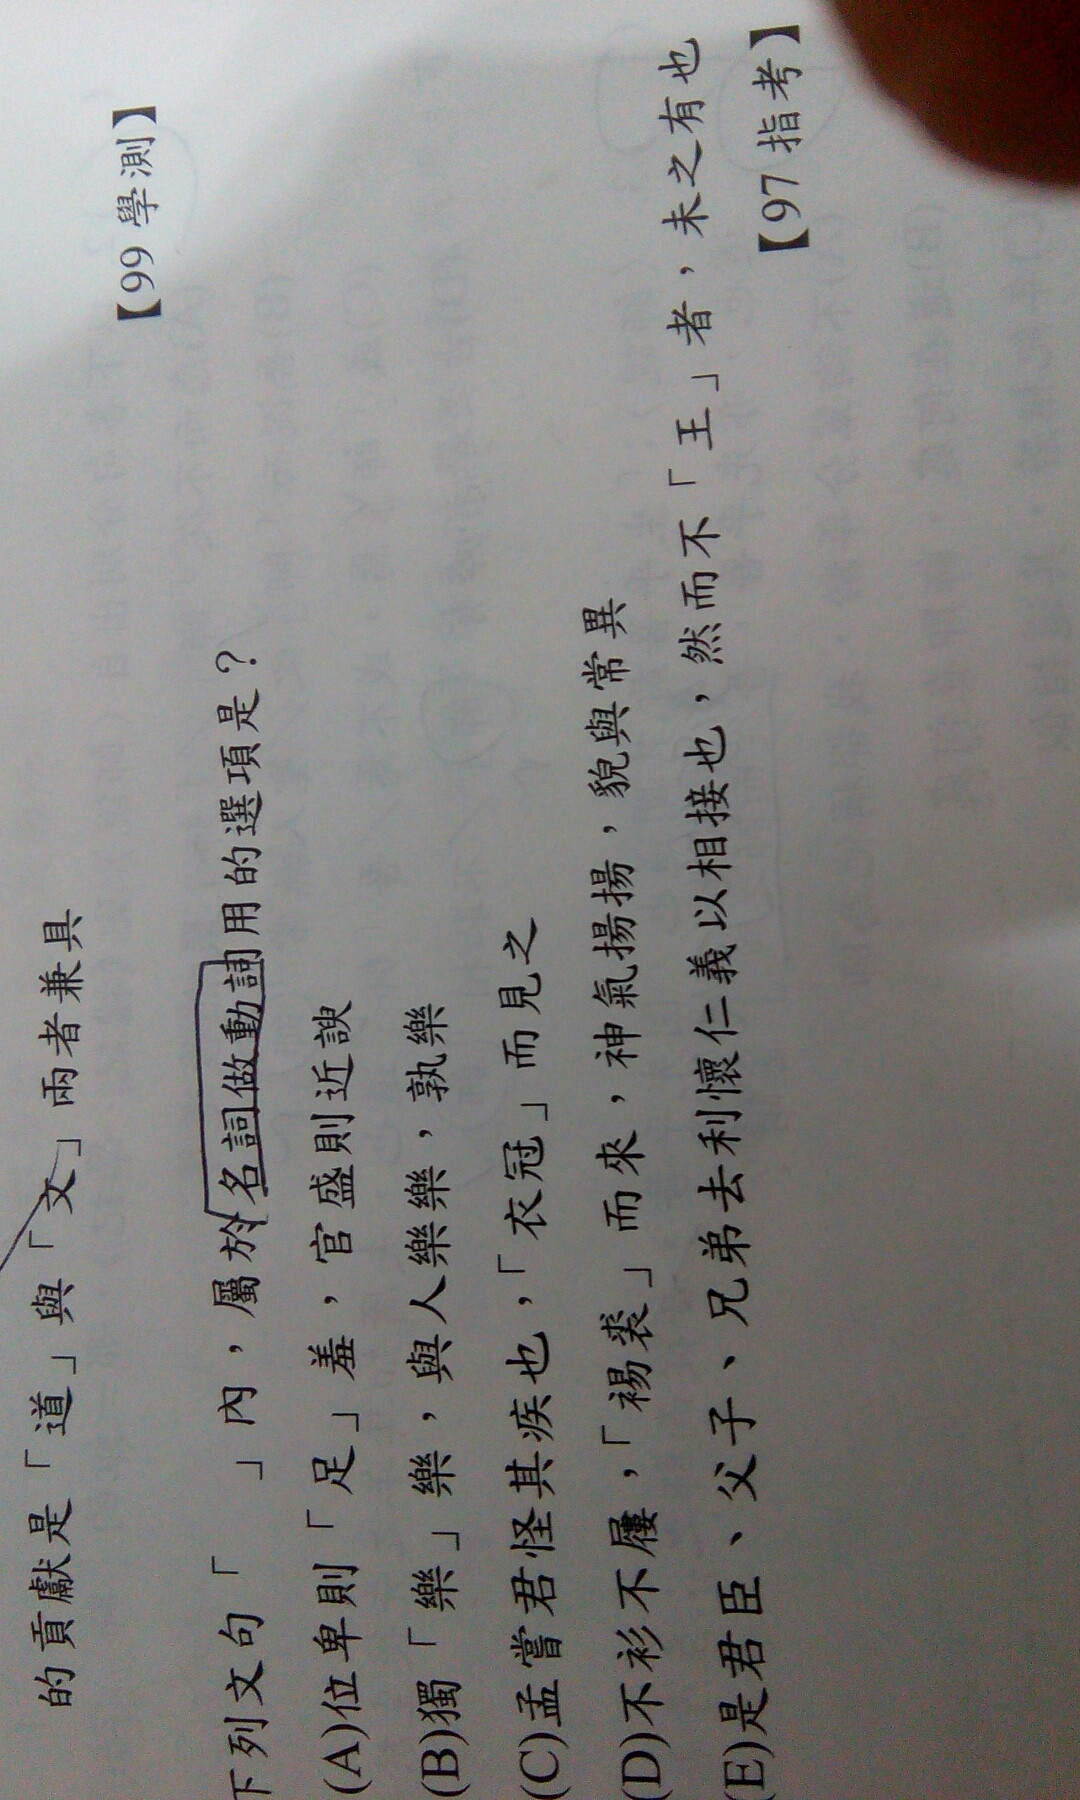 的貢獻是「道」與「文」兩者兼具
【99 學測】
下列文句「 」內，屬於名詞做動詞用的選項是？
(A)位卑則「足」羞，官盛則近諛
(B)獨「樂」樂，與人樂樂，孰樂
(C)孟嘗君怪其疾也，「衣冠」而見之
(D)不衫不屨，「裼裘」而來，神氣揚揚，貌與常異
(E)是君臣、父子、兄弟去利懷仁義以相接也，然而不「王」者，未之有也
【97 指考】